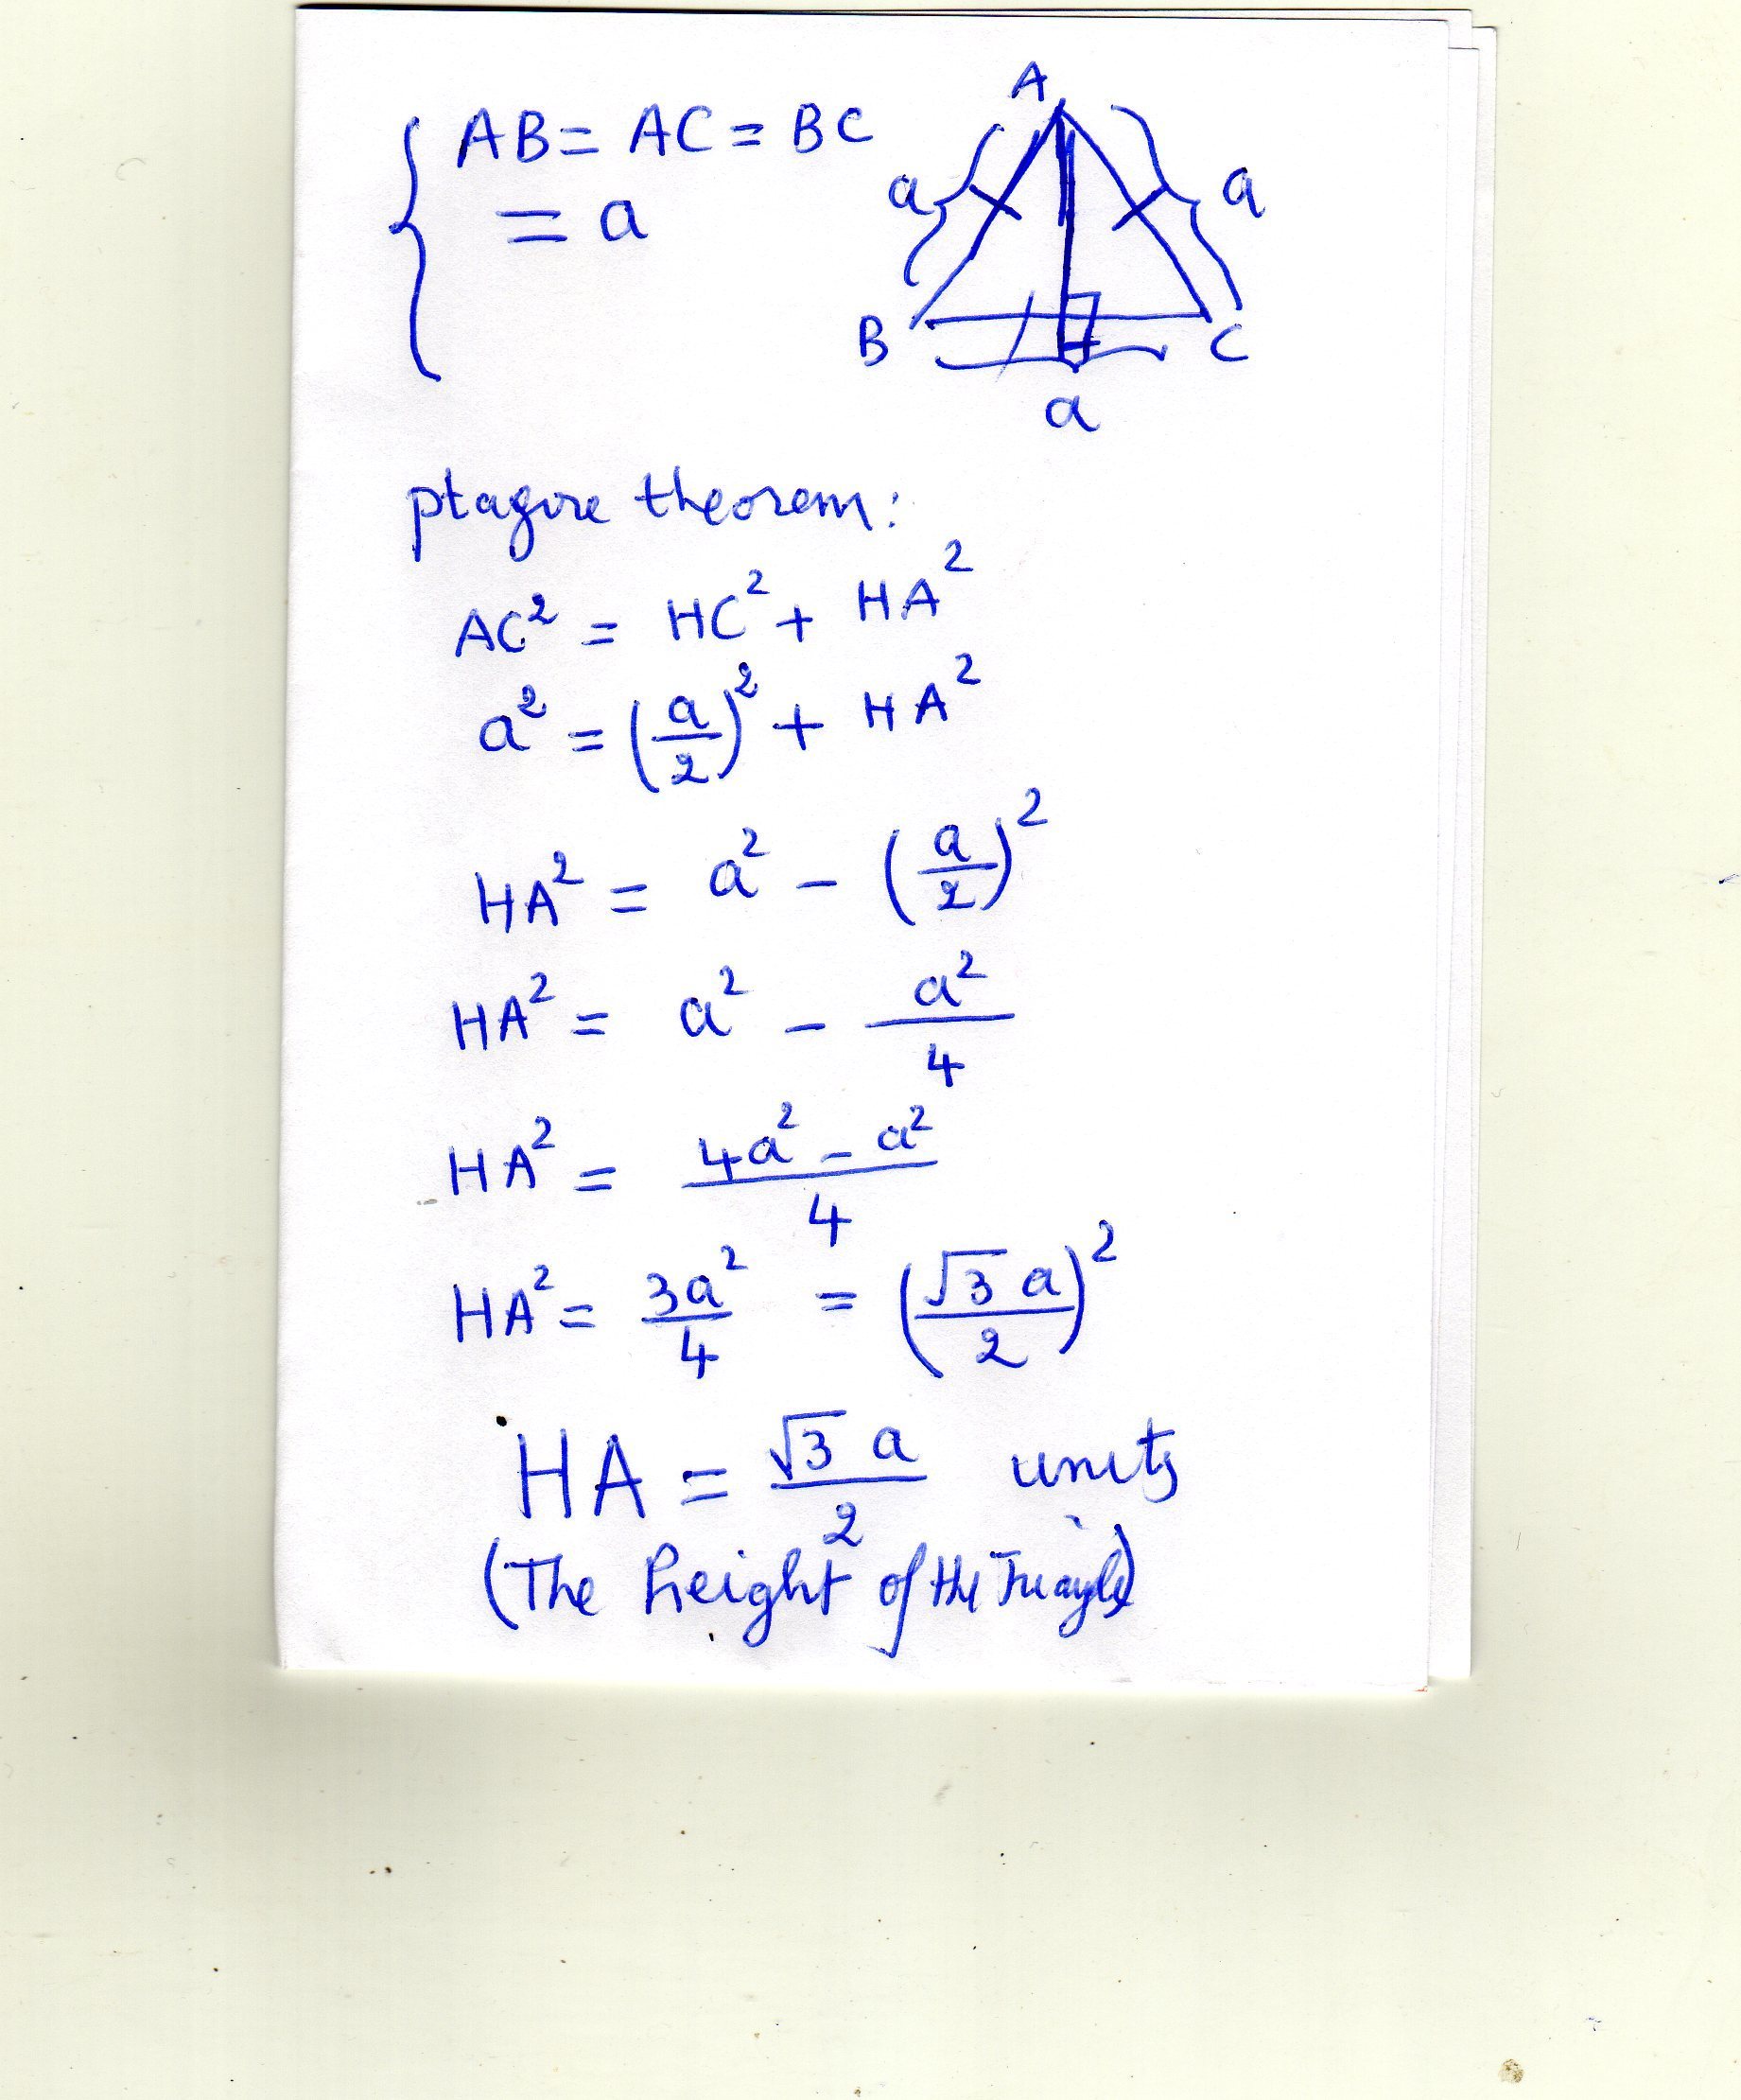 AB = AC = BC
= a
A
a
a
B
C
a
ptagore theorem:
AC² = HC² + HA²
a² = (a/2)² + HA²
HA² = a² - (a/2)²
HA² = a² - a²/4
HA² = (4a² - a²)/4
HA² = 3a²/4 = (√3 a/2)²
HA = √3 a/2 units
(The height of the Triangle)